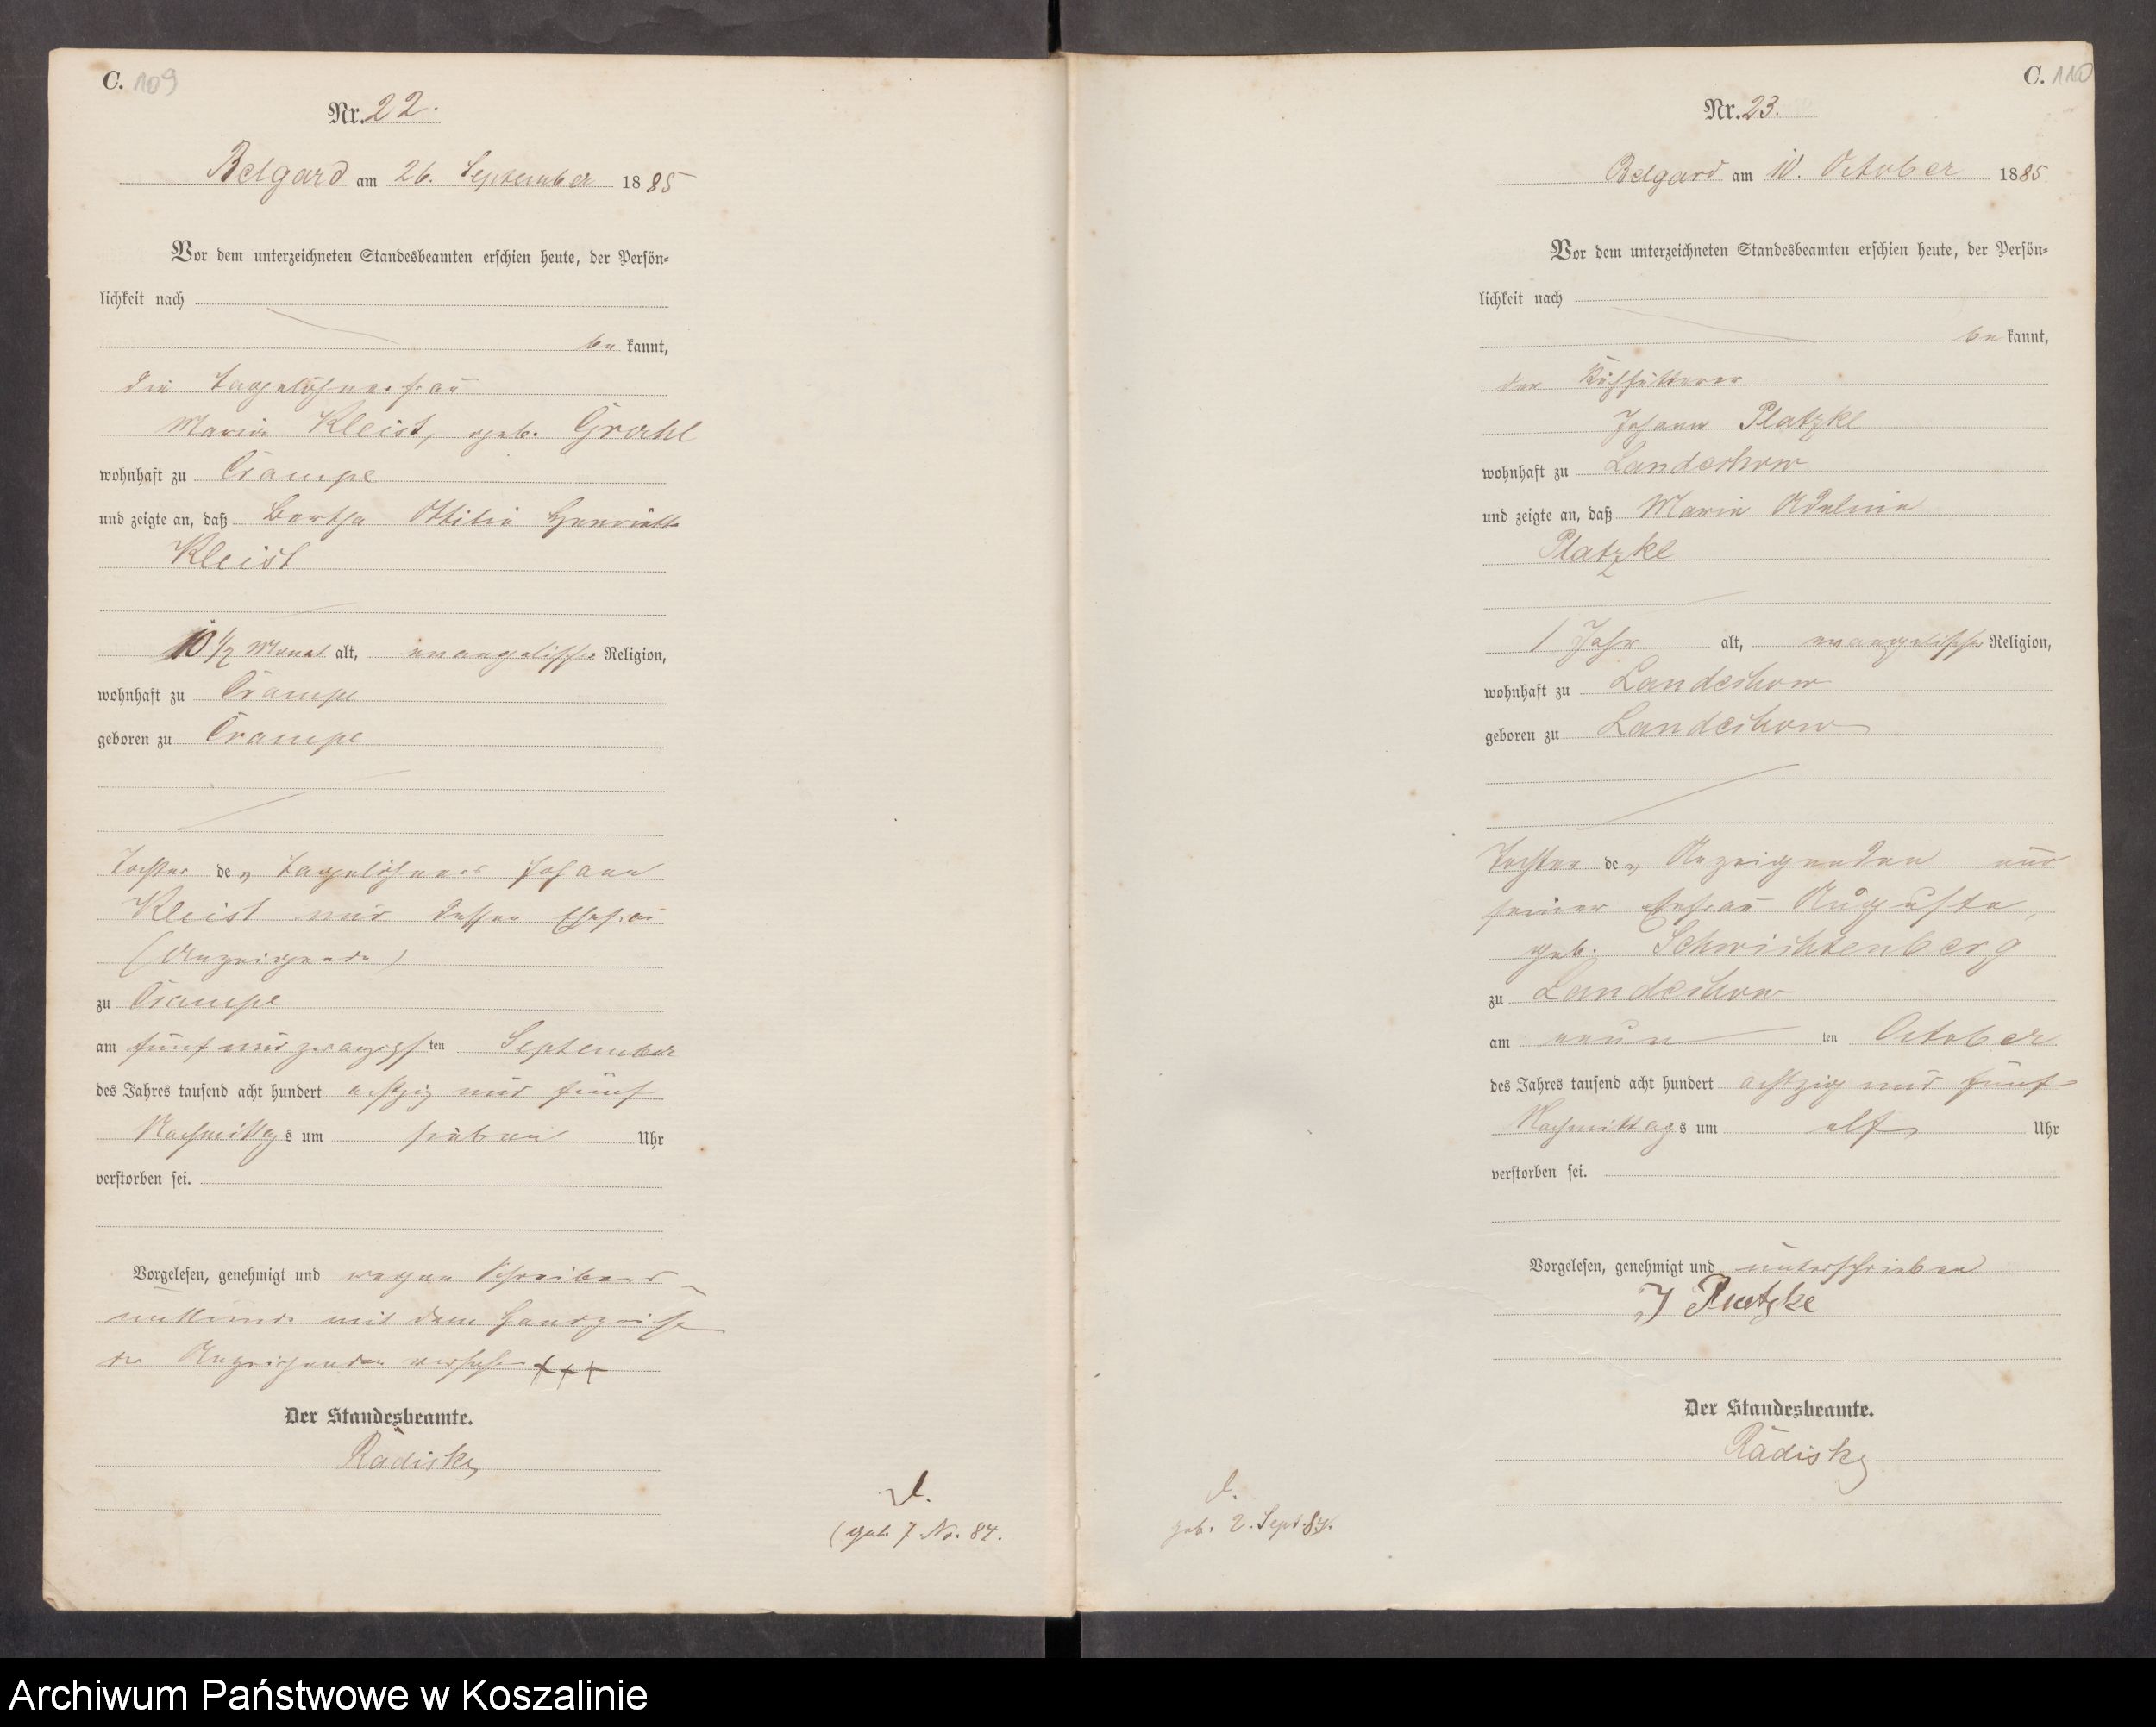 C. 109
Nr. 22.
Belgard am 26. September 1885
Vor dem unterzeichneten Standesbeamten erschien heute, der Persön-
lichkeit nach
bekannt,
die Tagelöhnerfrau
Marie Kleist, geb. Grahl
wohnhaft zu Crampe
und zeigte an, daß Bertha Ottilie Henriette
Kleist
10 1/2 Monat alt, evangelischer Religion,
wohnhaft zu Crampe
geboren zu Crampe
Tochter des Tagelöhners Johann
Kleist und dessen Ehefrau
(Anzeigende)
zu Crampe
am fünf und zwanzigsten September
des Jahres tausend acht hundert achtzig und fünf
Nachmittags um sieben Uhr
verstorben sei.
Vorgelesen, genehmigt und wegen Schreibens-
unkunde mit dem Handzeichen
der Anzeigenden versehen +++
Der Standesbeamte.
Rädisky
(geb. 7 No. 84.
C. 110
Nr. 23.
Belgard am 10. October 1885
Vor dem unterzeichneten Standesbeamten erschien heute, der Persön-
lichkeit nach
bekannt,
der Kuhfütterer
Johann Platzke
wohnhaft zu Landechow
und zeigte an, daß Marie Adeline
Platzke
1 Jahr alt, evangelischer Religion,
wohnhaft zu Landechow
geboren zu Landechow
Tochter des Anzeigenden und
seiner Ehefrau Auguste,
geb. Schwichtenberg
zu Landechow
am neunten October
des Jahres tausend acht hundert achtzig und fünf
Nachmittags um elf Uhr
verstorben sei.
Vorgelesen, genehmigt und unterschrieben
J Platzke
Der Standesbeamte.
Rädisky
geb. 2. Sept. 84.
Archiwum Państwowe w Koszalinie